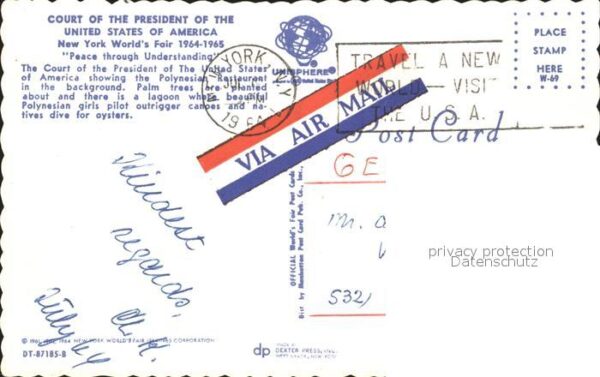 COURT OF THE PRESIDENT OF THE
UNITED STATES OF AMERICA
New York World's Fair 1964-1965
"Peace through Understanding"
The Court of the President of The United States
of America showing the Polynesian Restaurant
in the background. Palm trees are planted
about and there is a lagoon where beautiful
Polynesian girls pilot outrigger canoes and na-
tives dive for oysters.
UNISPHERE
NEW YORK, N.Y.
1964
TRAVEL A NEW
WORLD - VISIT
THE U.S.A.
PLACE
STAMP
HERE
W-69
VIA AIR MAIL
Post Card
GE
Mr.
532
privacy protection
Datenschutz
Kindest
regards,
July 64
OFFICIAL World's Fair Post Cards
Dist. by Manhattan Post Card Pub. Co., Inc.,
NEW YORK WORLD'S FAIR 1964-1965 CORPORATION
DT-87185-B
dp
MADE BY
DEXTER PRESS, INC.
WEST NYACK, NEW YORK